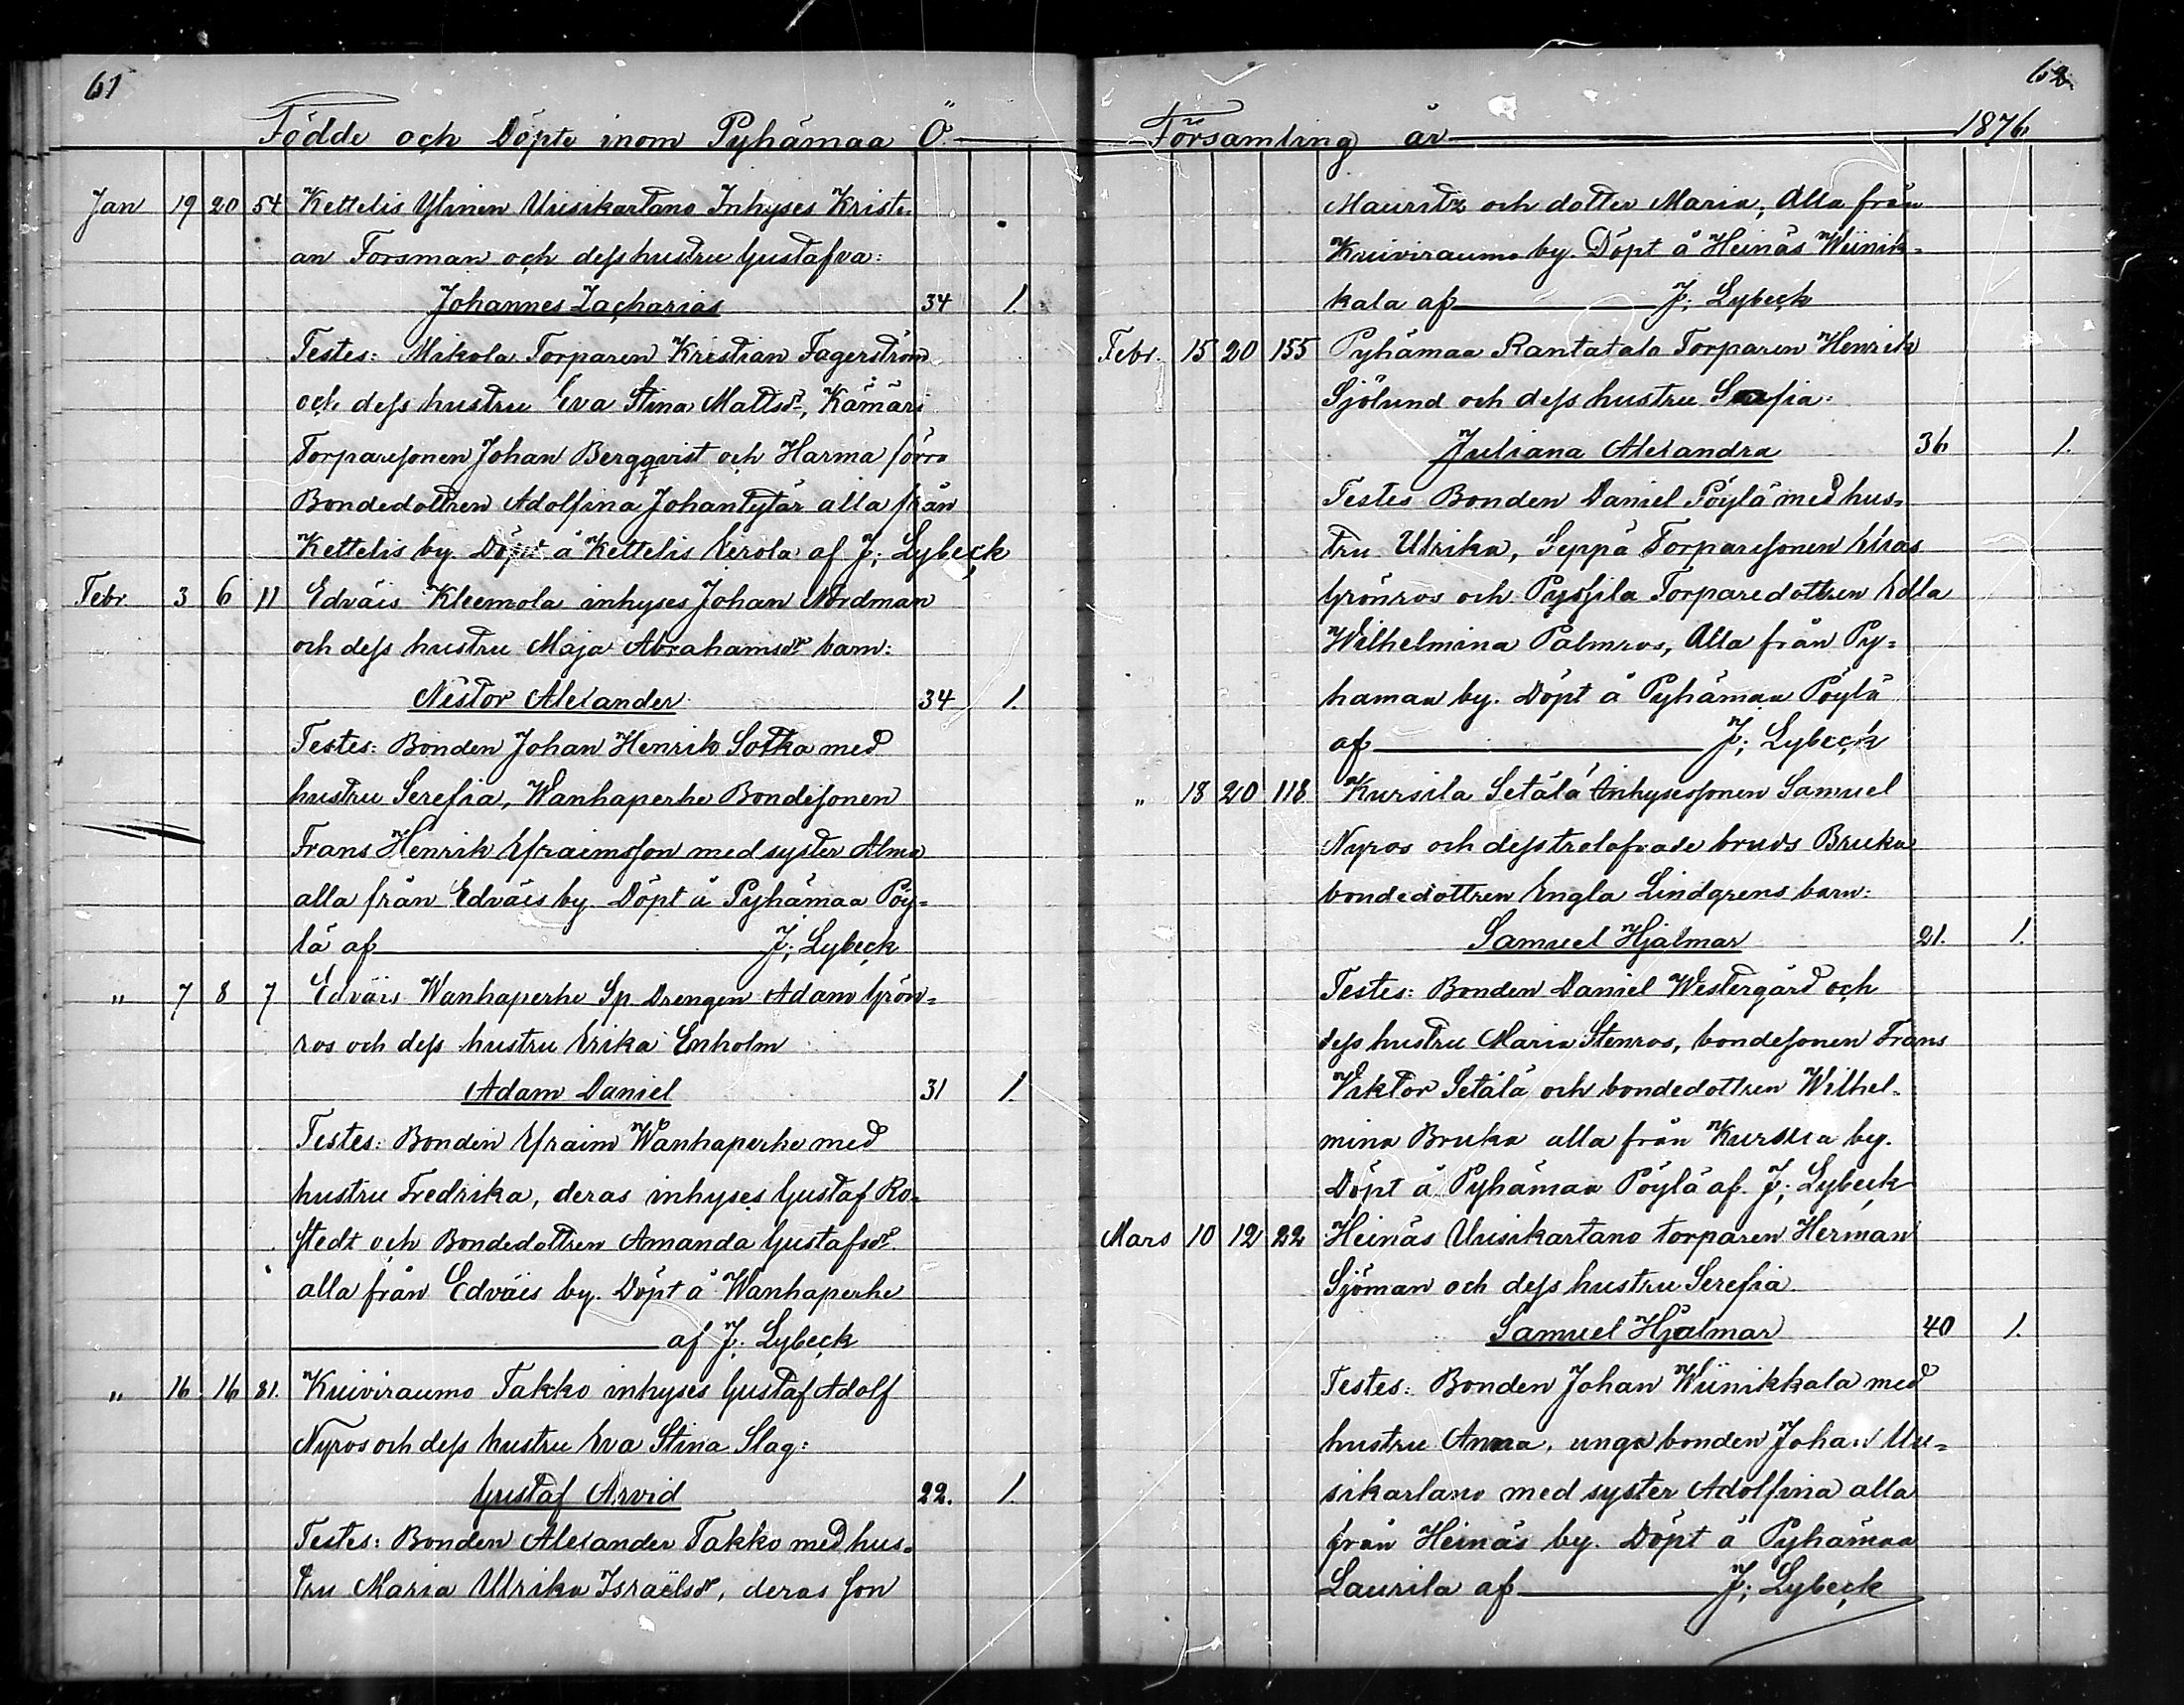 61
Födde och Döpte inom Pyhämaa Ö.
Jan 19 20 54 Kettelis Ylinen Uusikartano Inhyses Kristi-
an Forsman och dess hustru Gustafva:
Johannes Zacharias 34 1.
Testes: Mikola Torparen Kristian Fagerström
och dess hustru Eva Stina Mattsdr, Kämäri
Torparesonen Johan Bergqvist och Harma förra
Bondedottren Adolfina Johantytär alla från
Kettelis by. Döpt å Kettelis Eerola af J. Lybeck
Febr 3 6 11 Edväis Kleemola inhyses Johan Nordman
och dess hustru Maja Abrahamsdr barn:
Nestor Alexander 34 1.
Testes: Bonden Johan Henrik Sotka med
hustru Serefia, Wanhaperhe Bondesonen
Frans Henrik Efraimsson med syster Alma
alla från Edväis by. Döpt å Pyhämaa Pöy-
lä af J. Lybeck
" 7 8 7 Edväis Wanhaperhe Sp. Drengen Adam Grön-
ros och dess hustru Erika Enholm
Adam Daniel 31 1.
Testes: Bonden Efraim Wanhaperhe med
hustru Fredrika, deras inhyses Gustaf Ro-
stedt och Bondedottren Amanda Gustafsdr
alla från Edväis by. Döpt å Wanhaperhe
af J. Lybeck
" 16 16 81. Kuiviraumo Takko inhyses Gustaf Adolf
Nyros och dess hustru Eva Stina Slag:
Gustaf Arvid 22. 1.
Testes: Bonden Alexander Takko med hus-
tru Maria Ulrika Israelsdr, deras son
62
Församling år 1876.
Mauritz och dotter Maria, Alla från
Kuiviraumo by. Döpt å Heinäs Wiinik-
kala af J. Lybeck
Febr. 15 20 155 Pyhämaa Rantatalo Torparen Henrik
Sjölund och dess hustru Serefia:
Juliana Alexandra 36 1.
Testes Bonden Daniel Pöylä med hus-
tru Ulrika, Seppä Torparesonen Elias
Grönros och Pyssila Torparedottren Edla
Wilhelmina Palmros, Alla från Py-
hamaa by. Döpt å Pyhämaa Pöylä
af J. Lybeck
" 18 20 118. Kursila Setälä Inhysessonen Samuel
Nyros och dess trolofvade bruds Bruka
bondedottren Engla Lindgrens barn:
Samuel Hjalmar 21. 1.
Testes: Bonden Daniel Westergård och
dess hustru Maria Stenros, bondesonen Frans
Viktor Setälä och bondedottren Wilhel-
mina Bruka alla från Kursila by.
Döpt å Pyhämaa Pöylä af J. Lybeck
Mars 10 12 22 Heinäs Uusikartano torparen Herman
Sjöman och dess hustru Serefia
Samuel Hjalmar 40 1.
Testes: Bonden Johan Wiinikkala med
hustru Anna, unga bonden Johan Uu-
sikartano med syster Adolfina alla
från Heinäs by. Döpt å Pyhämaa
Laurila af J. Lybeck